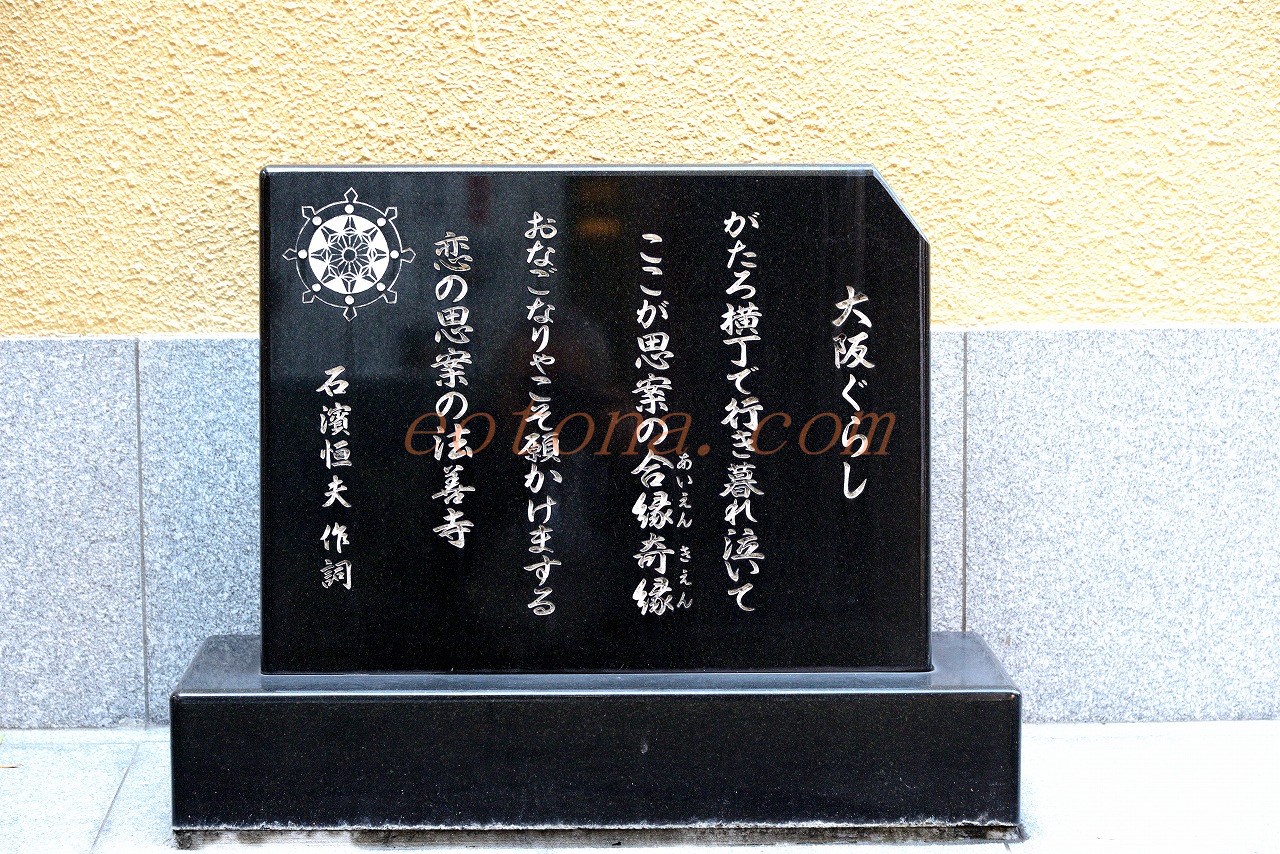 大阪ぐらし
がたろ横丁で行き暮れ泣いて
ここが思案の合縁奇縁
あいえん きえん
おなごなりゃこそ願かけまする
恋の思案の法善寺
石濱恒夫 作詞
eotona.com